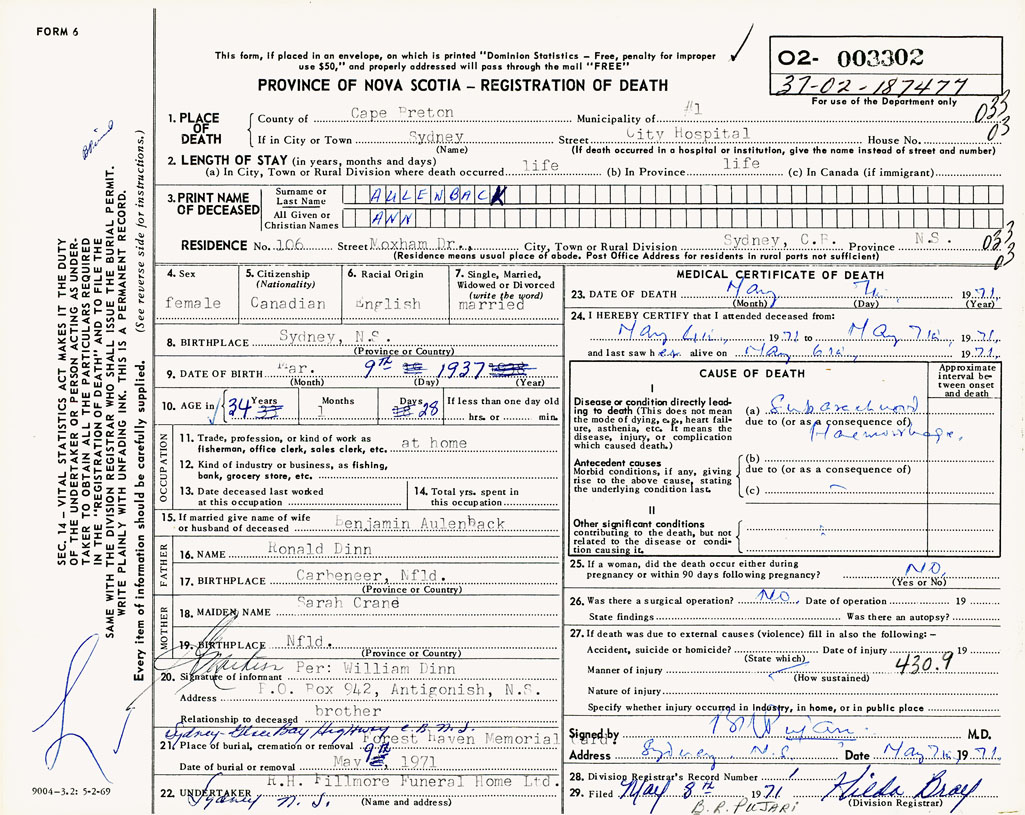 FORM 6
This form, if placed in an envelope, on which is printed "Dominion Statistics – Free, penalty for improper
use $50," and properly addressed will pass through the mail "FREE"
PROVINCE OF NOVA SCOTIA – REGISTRATION OF DEATH
02- 003302
37-02-187477
For use of the Department only
033
03
1. PLACE OF DEATH
County of Cape Breton Municipality of #1
If in City or Town Sydney Street City Hospital House No.
(Name) (If death occurred in a hospital or institution, give the name instead of street and number)
2. LENGTH OF STAY (in years, months and days)
(a) In City, Town or Rural Division where death occurred life (b) In Province life (c) In Canada (if immigrant)
3. PRINT NAME OF DECEASED
Surname or Last Name AULENBACK
All Given or Christian Names ANN
RESIDENCE No. 106 Street Moxham Dr., City, Town or Rural Division Sydney, C.B. Province N.S.
(Residence means usual place of abode. Post Office Address for residents in rural parts not sufficient)
033
03
4. Sex
female
5. Citizenship
(Nationality)
Canadian
6. Racial Origin
English
7. Single, Married,
Widowed or Divorced
(write the word)
married
8. BIRTHPLACE Sydney, N.S.
(Province or Country)
9. DATE OF BIRTH Mar. 9TH 1937
(Month) (Day) (Year)
10. AGE in 34 Years 1 Months 28 Days If less than one day old
hrs. or min.
OCCUPATION
11. Trade, profession, or kind of work as
fisherman, office clerk, sales clerk, etc. at home
12. Kind of industry or business, as fishing,
bank, grocery store, etc.
13. Date deceased last worked
at this occupation
14. Total yrs. spent in
this occupation
15. If married give name of wife
or husband of deceased Benjamin Aulenback
FATHER
16. NAME Ronald Dinn
17. BIRTHPLACE Carbeneer, Nfld.
(Province or Country)
MOTHER
18. MAIDEN NAME Sarah Crane
19. BIRTHPLACE Nfld.
(Province or Country)
Per: William Dinn
20. Signature of informant
Address P.O. Box 942, Antigonish, N.S.
Relationship to deceased brother
Sydney-Glace Bay Highway C.B. N.S.
21. Place of burial, cremation or removal Forest Haven Memorial Gard.
Date of burial or removal May 9th, 1971
22. UNDERTAKER R.H. Fillmore Funeral Home Ltd.
Sydney N.S. (Name and address)
MEDICAL CERTIFICATE OF DEATH
23. DATE OF DEATH May 7th 1971
(Month) (Day) (Year)
24. I HEREBY CERTIFY that I attended deceased from:
May 6th, 1971 to May 7th, 1971.
and last saw her alive on May 6th, 1971.
CAUSE OF DEATH
Approximate
interval be-
tween onset
and death
I
Disease or condition directly lead-
ing to death (This does not mean
the mode of dying, e.g., heart fail-
ure, asthenia, etc. It means the
disease, injury, or complication
which caused death.
(a) Subarachnoid
due to (or as a consequence of)
Haemorrhage.
Antecedent causes
Morbid conditions, if any, giving
rise to the above cause, stating
the underlying condition last.
(b)
due to (or as a consequence of)
(c)
II
Other significant conditions
contributing to the death, but not
related to the disease or condi-
tion causing it.
25. If a woman, did the death occur either during
pregnancy or within 90 days following pregnancy? NO.
(Yes or No)
26. Was there a surgical operation? NO. Date of operation 19
State findings Was there an autopsy?
27. If death was due to external causes (violence) fill in also the following:–
Accident, suicide or homicide? Date of injury 19
(State which)
Manner of injury 430.9
(How sustained)
Nature of injury
Specify whether injury occurred in industry, in home, or in public place
Signed by BR Pujari M.D.
Address Sydney, N.S. Date May 7th, 1971.
28. Division Registrar's Record Number 1
29. Filed May 8th 1971 Hilda Bray
(Division Registrar)
B.R. PUJARI
SEC. 14 – VITAL STATISTICS ACT MAKES IT THE DUTY
OF THE UNDERTAKER OR PERSON ACTING AS UNDER-
TAKER TO OBTAIN ALL THE PARTICULARS REQUIRED
IN THE "REGISTRATION OF DEATH" AND TO FILE THE
SAME WITH THE DIVISION REGISTRAR WHO SHALL ISSUE THE BURIAL PERMIT.
WRITE PLAINLY WITH UNFADING INK. THIS IS A PERMANENT RECORD.
Every item of information should be carefully supplied. (See reverse side for instructions.)
9004-3.2: 5-2-69